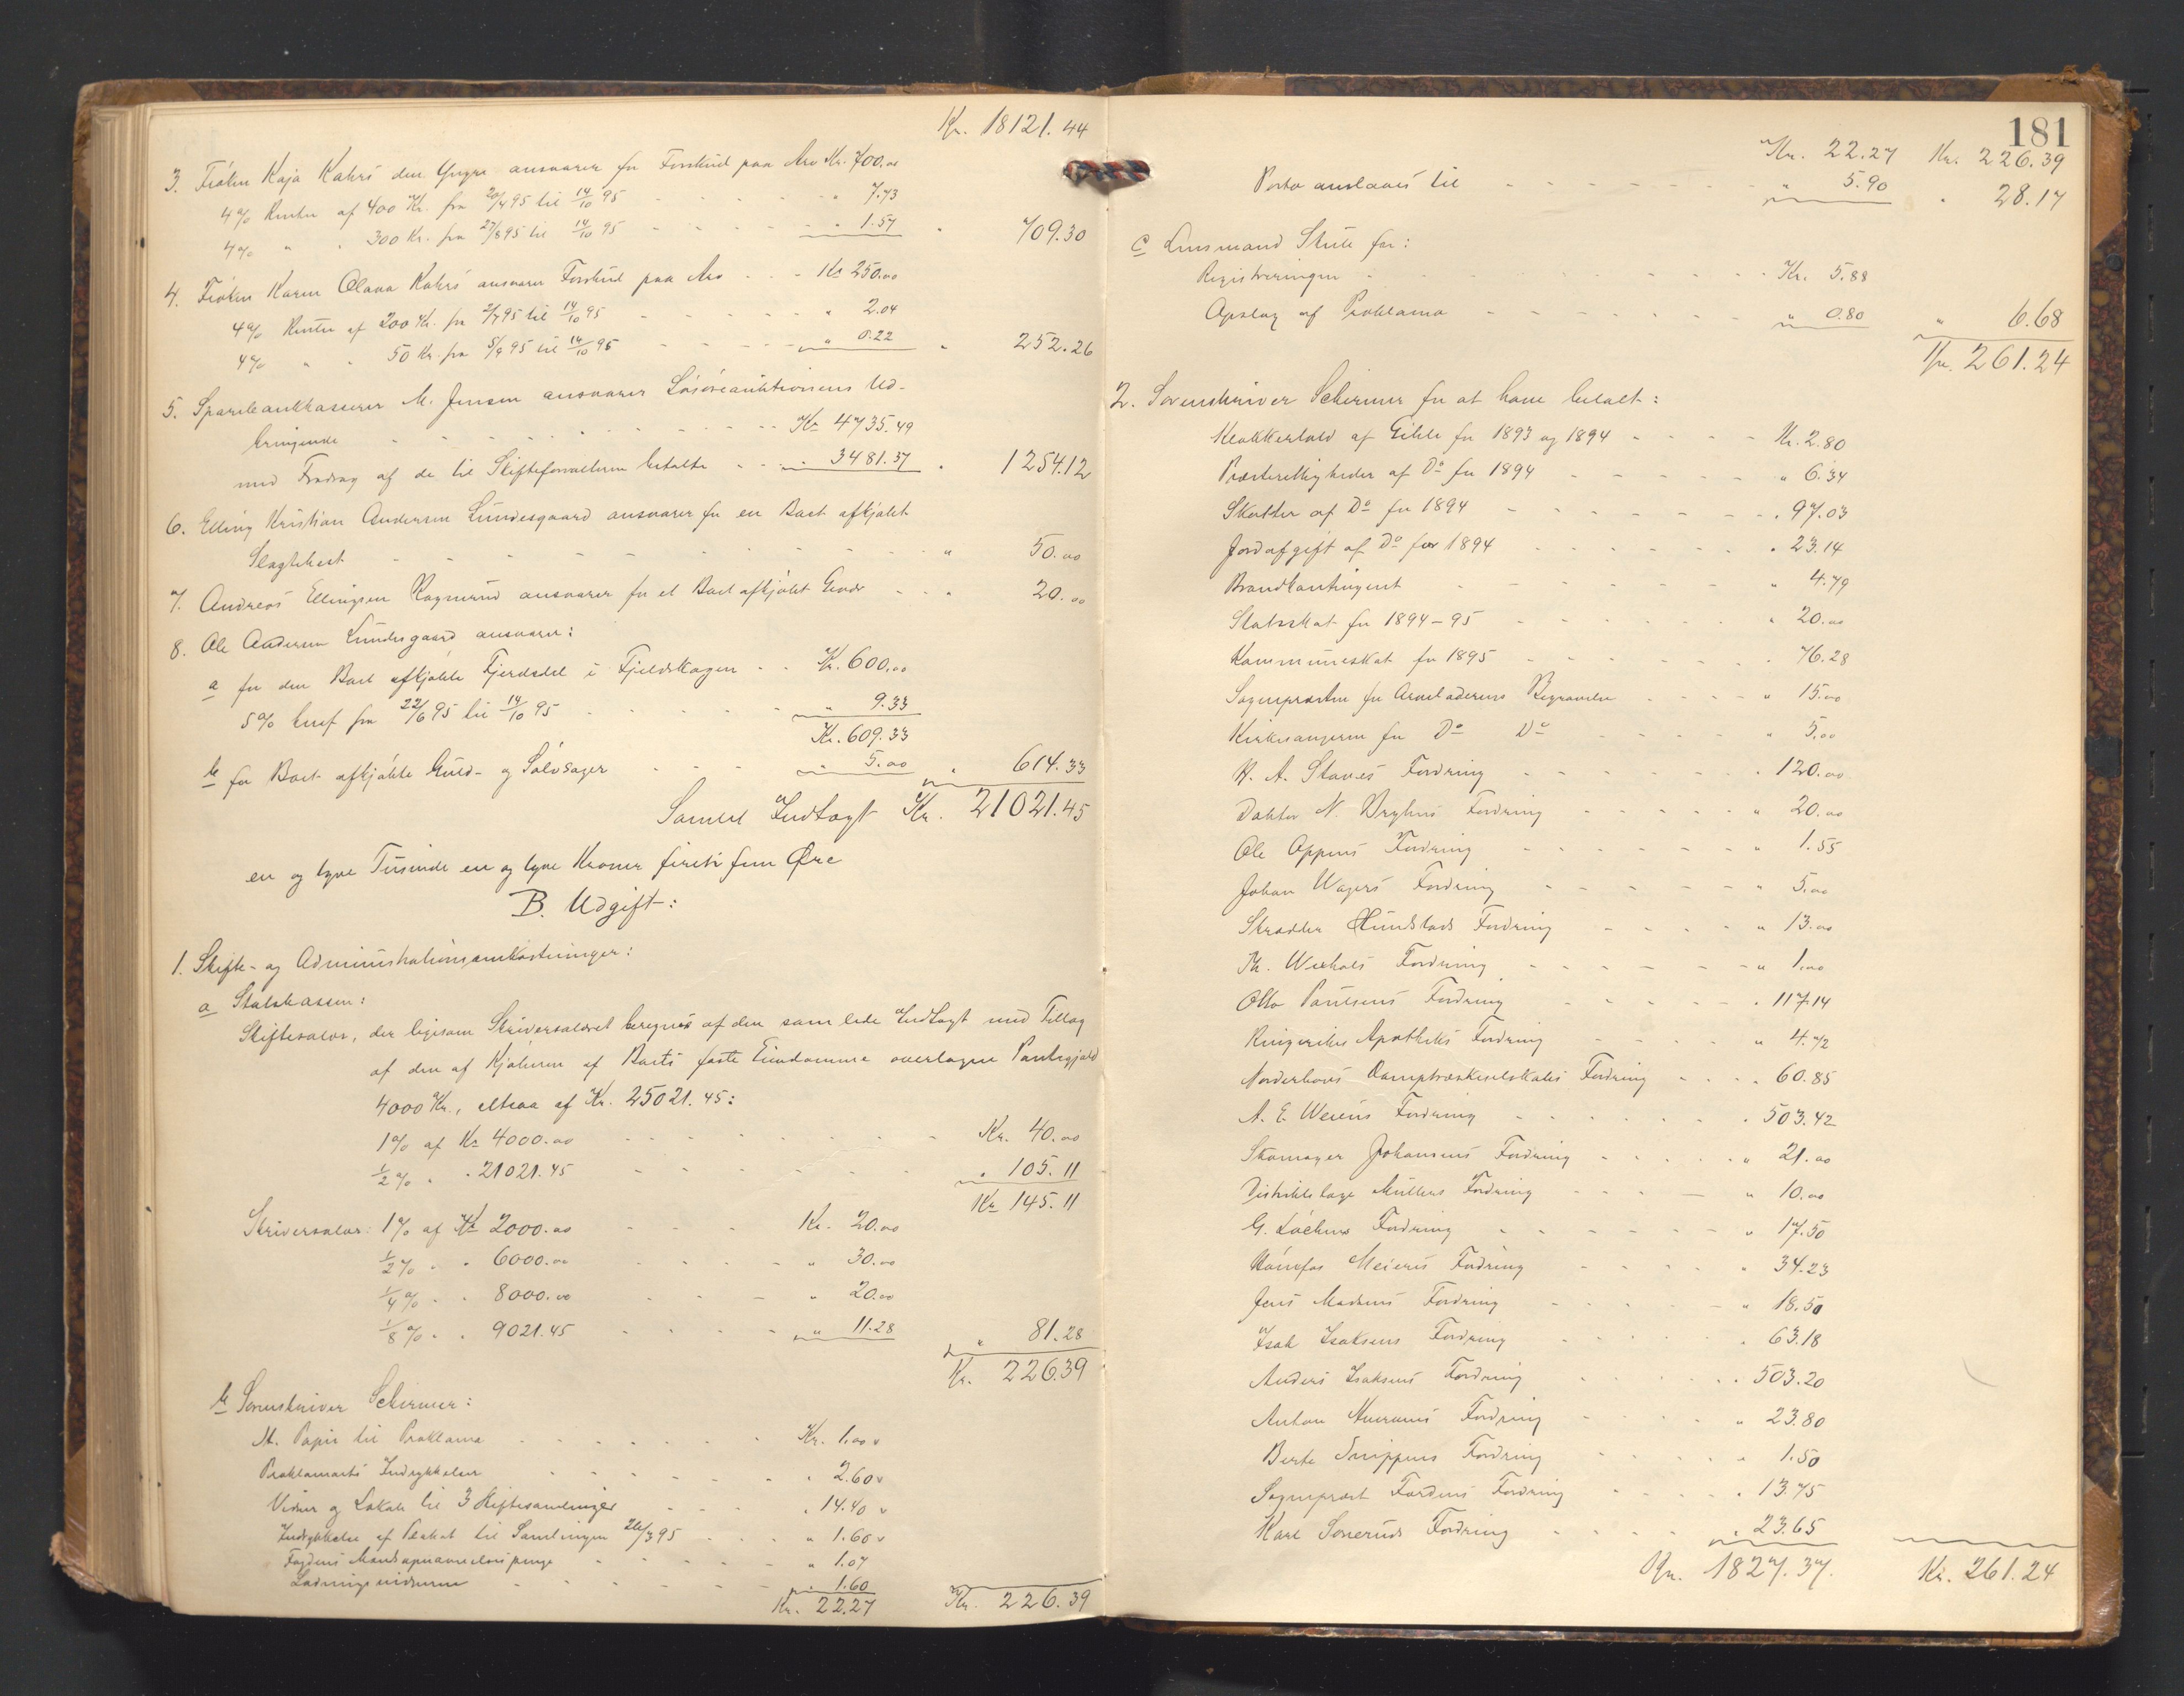 Kr. 18121.44
3. Frøken Kaja Kahrs den Yngre ansvarer for Forskud paa Arv Kr. 700.00
4% Renter af 400 Kr. fra 20/4 95 til 14/10 95 - - - " 7.73
4% " " 300 Kr. fra 27/8 95 til 14/10 95 - - - " 1.57 " 709.30
4. Frøken Karen Olava Kahrs ansvarer Forskud paa Arv - - Kr 250.00
4% Renter af 200 Kr. fra 2/7 95 til 14/10 95 - - - " 2.04
4% " " 50 Kr. fra 5/9 95 til 14/10 95 - - - " 0.22 " 252.26
5. Sparebankkasserer M. Jensen ansvarer Løsøreauktionens Ud-
bringende - - - Kr 4735.49
med Fradrag af de til Skifteforvalteren betalte - - " 3481.37 " 1254.12
6. Elling Kristian Andersen Lundesgaard ansvarer for en Boet afkjøbt
Slagtehest - - - " 50.00
7. Andreas Ellingsen Ragnerud ansvarer for et Boet afkjøbt - - " 20.00
8. Ole Andersen Lundesgaard ansvarer:
a for den Boet afkjøbte Fjerdedel i Fjeldskogen - - Kr. 600.00
5% heraf fra 22/6 95 til 14/10 95 - - - " 9.33
Kr. 609.33
b for Boet afkjøbte Guld- og Sølvsager - - - " 5.00 " 614.33
Samlet Indtægt Kr. 21021.45
en og tyve Tusinde en og tyve Kroner fireti fem Øre
B. Udgift:
1. Skifte- og Administrationsomkostninger:
a Statskassen:
Skiftesalær, der ligesom Skriversalæret beregnes af den samlede Indtægt med Tillæg
af den af Kjøberen af Boets faste Eiendomme overtagne Pantegjæld
4000 Kr., altsaa af Kr. 25021.45:
1% af Kr 4000.00 - - - Kr. 40.00
1/2% " " 21021.45 - - - " 105.11
Kr 145.11
Skriversalær: 1% af Kr 2000.00 - - - Kr. 20.00
1/2% " " 6000.00 - - - " 30.00
1/4% " " 8000.00 - - - " 20.00
1/8% " " 9021.45 - - - " 11.28 " 81.28
Kr. 226.39
b Sorenskriver Schirmer:
St. Papir til Proklama - - - Kr. 1.00 v
Proklamaets Indrykkelser - - - " 2.60 v
Vidner og Lokale til 3 Skiftesamlinger - - - " 14.40 v
Indrykkelse af Plakat til Samlingen 26/3 95 - - " 1.60 v
Fogdens Mandsopnævnelsespenge - - - " 1.07
Ladningsvidnerne - - - " 1.60
Kr. 22.27 Kr. 226.39
181
Kr. 22.27 Kr. 226.39
Porto anslaaes til - - - " 5.90 " 28.17
c Lensmand Skule for:
Registreringen - - - Kr. 5.88
Opslag af Proklama - - - " 0.80 " 6.68
Kr. 261.24
2. Sorenskriver Schirmer for at have betalt:
Klokkertold af Gihle for 1893 og 1894 - - - Kr. 2.80
Presterettigheder af Do for 1894 - - - " 6.34
Skatter af Do for 1894 - - - " 97.03
Jordafgift af Do for 1894 - - - " 23.14
Brandkontingent - - - " 4.79
Statsskat for 1894-95 - - - " 20.00
Kommuneskat for 1895 - - - " 76.28
Sognepresten for Arveladerens Begravelse - - - " 15.00
Kirkesangeren for Do Do - - - " 5.00
H. A. Staves Fordring - - - " 120.00
Doktor N. Fordring - - - " 20.00
Ole Oppens Fordring - - - " 1.55
Johan Wagers Fordring - - - " 5.00
Skrædder Hundstads Fordring - - - " 13.00
Th. Fordring - - - " 1.00
Otto Paulsens Fordring - - - " 117.14
Ringerikes Apotheks Fordring - - - " 4.72
Norderhovs Damptræskeselskabs Fordring - - - " 60.85
A. E. Weiens Fordring - - - " 503.42
Skomager Johansens Fordring - - - " 21.00
Distriktslæge Müllers Fordring - - - " 10.00
G. Løchens Fordring - - - " 17.50
Hønefos Meieris Fordring - - - " 34.23
Jens Madsens Fordring - - - " 18.50
Isak Isaksens Fordring - - - " 63.18
Anders Isaksens Fordring - - - " 503.20
Anton Fordring - - - " 23.80
Berte Snippens Fordring - - - " 1.50
Sogneprest Fordring - - - " 13.75
Karl Soneruds Fordring - - - " 23.65
Kr. 1827.37. Kr. 261.24